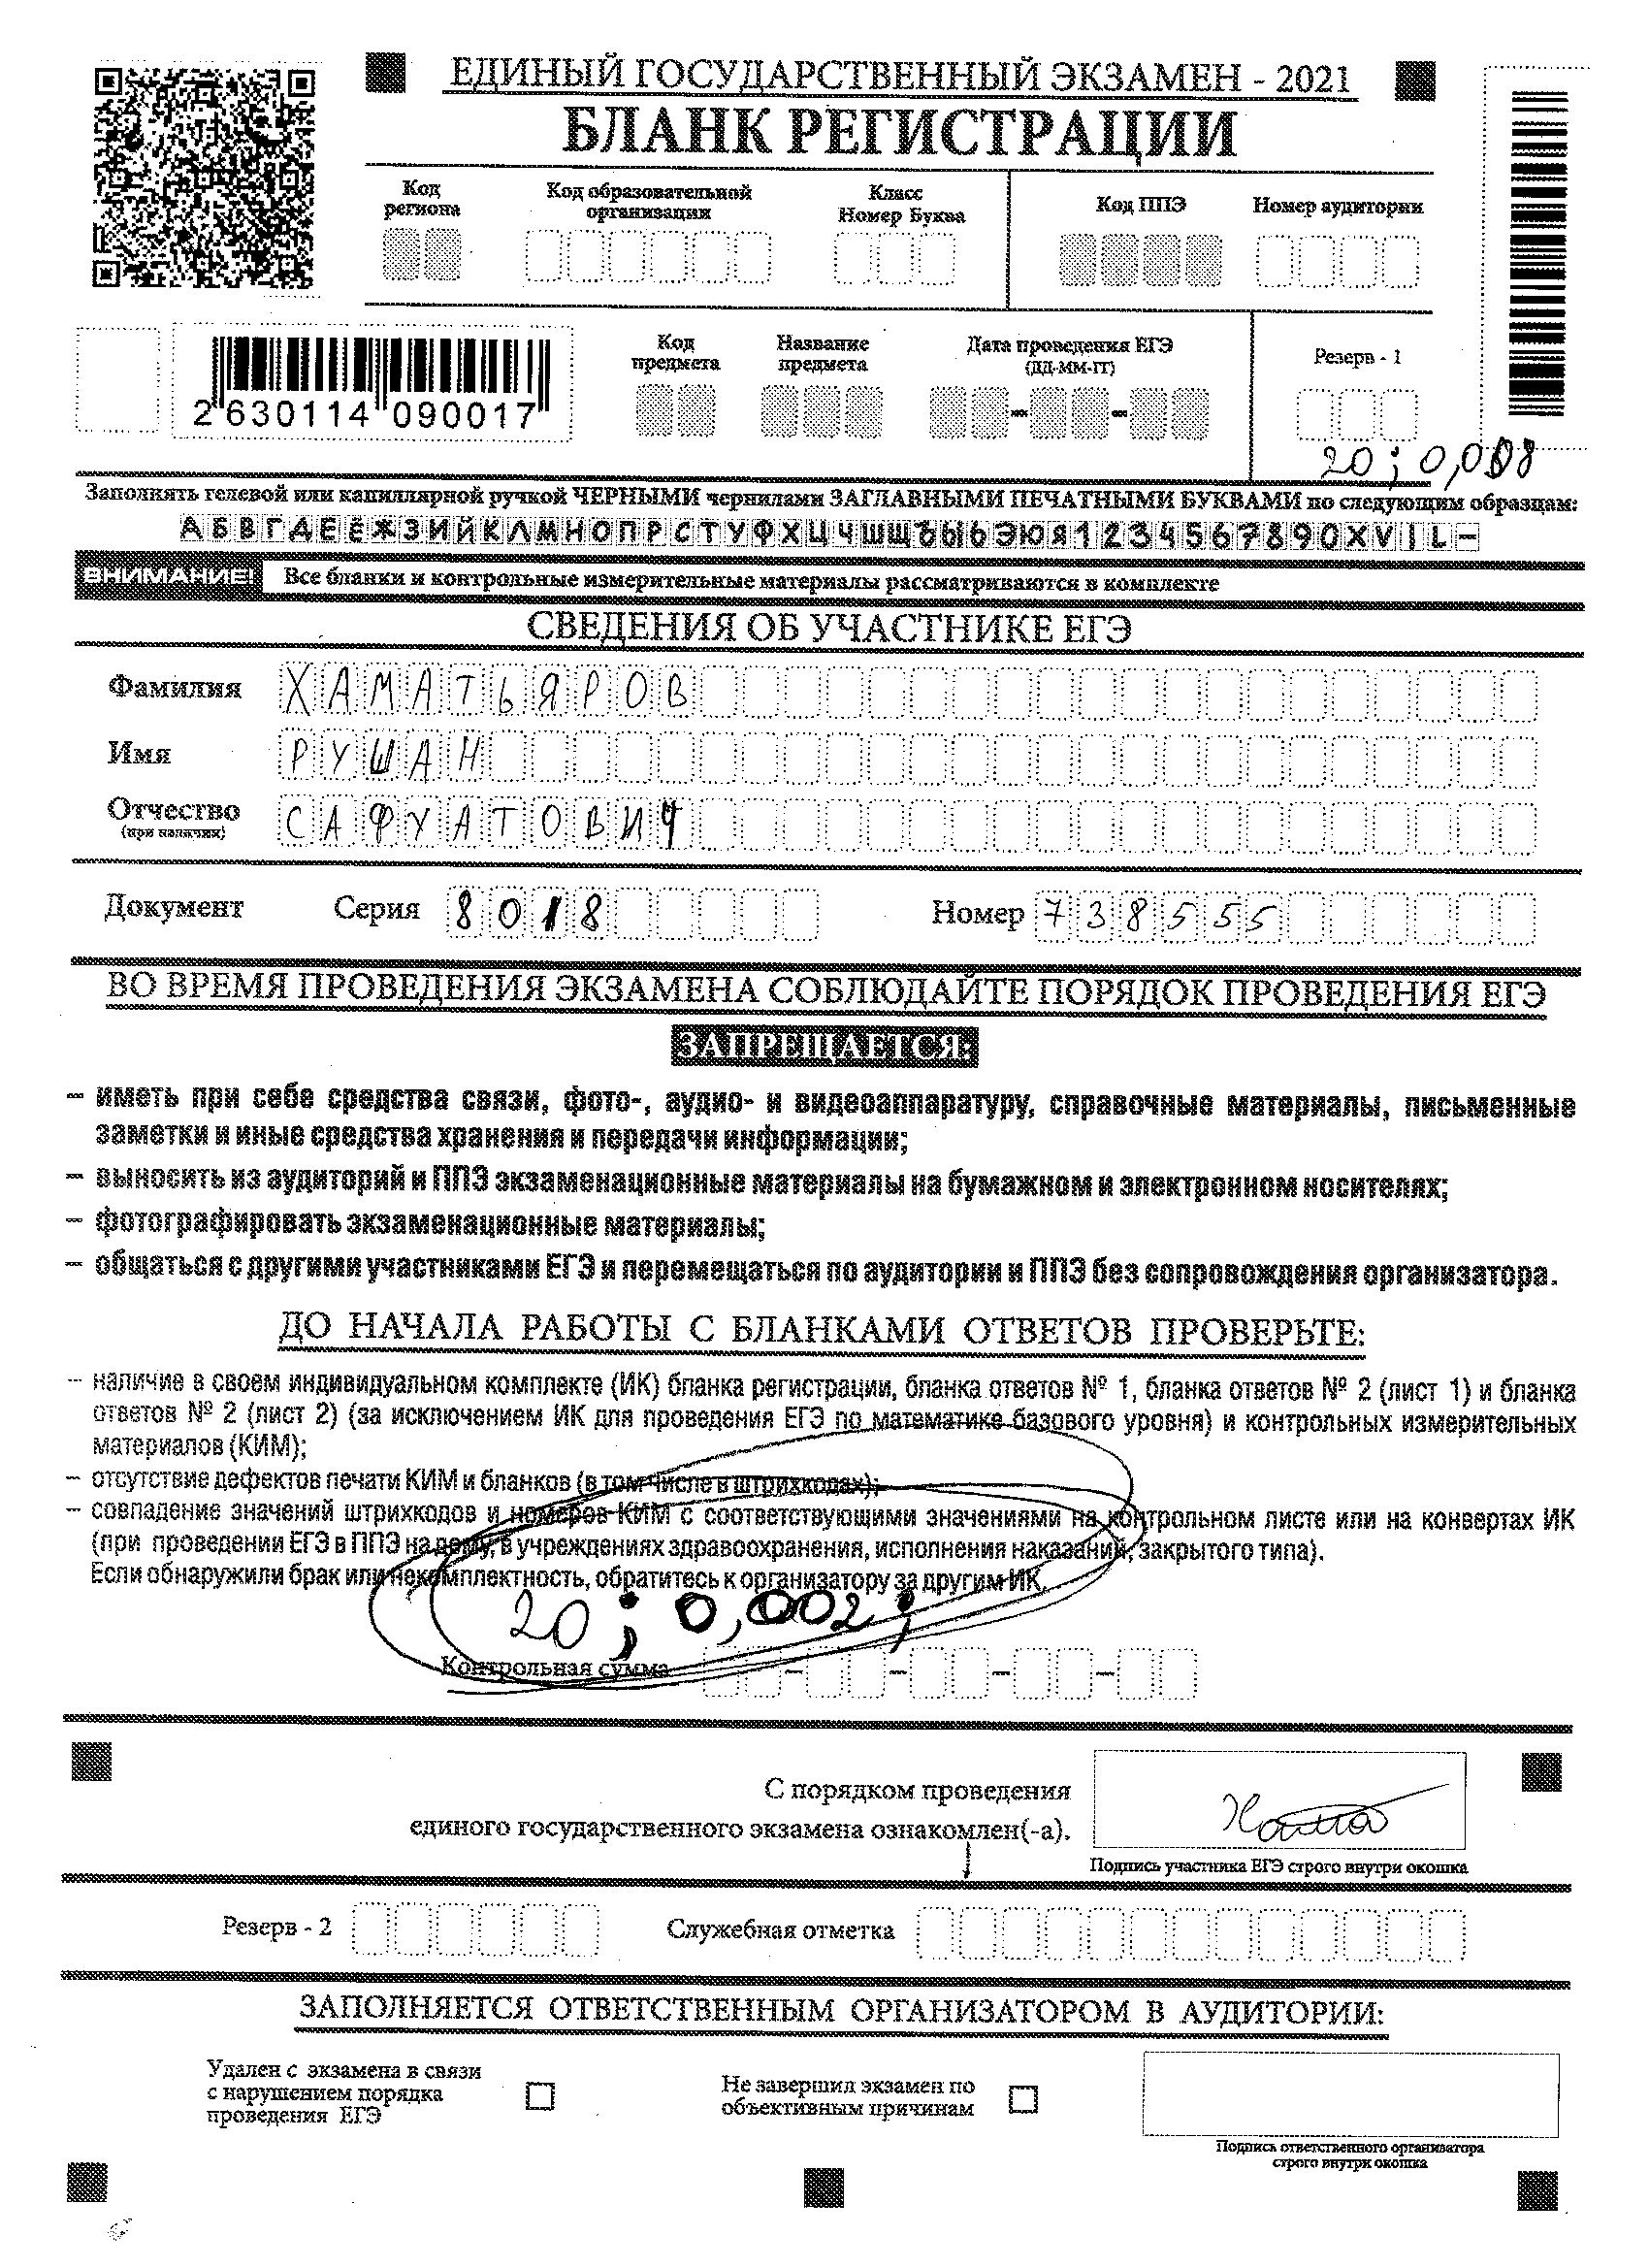 ЕДИНЫЙ ГОСУДАРСТВЕННЫЙ ЭКЗАМЕН - 2021
БЛАНК РЕГИСТРАЦИИ
Код региона
Код образовательной организации
Класс
Номер Буква
Код ППЭ
Номер аудитории
2 630114 090017
Код предмета
Название предмета
Дата проведения ЕГЭ
(ДД-ММ-ГГ)
Резерв - 1
20; 0,008
Заполнять гелевой или капиллярной ручкой ЧЕРНЫМИ чернилами ЗАГЛАВНЫМИ ПЕЧАТНЫМИ БУКВАМИ по следующим образцам:
АБВГДЕЁЖЗИЙКЛМНОПРСТУФХЦЧШЩЪЫЬЭЮЯ1234567890XVIL-
ВНИМАНИЕ! Все бланки и контрольные измерительные материалы рассматриваются в комплекте
СВЕДЕНИЯ ОБ УЧАСТНИКЕ ЕГЭ
Фамилия ХАМАТЬЯРОВ
Имя РУШАН
Отчество САФУАТОВИЧ
(при наличии)
Документ Серия 8018 Номер 738555
ВО ВРЕМЯ ПРОВЕДЕНИЯ ЭКЗАМЕНА СОБЛЮДАЙТЕ ПОРЯДОК ПРОВЕДЕНИЯ ЕГЭ
ЗАПРЕЩАЕТСЯ:
– иметь при себе средства связи, фото-, аудио- и видеоаппаратуру, справочные материалы, письменные
заметки и иные средства хранения и передачи информации;
– выносить из аудиторий и ППЭ экзаменационные материалы на бумажном и электронном носителях;
– фотографировать экзаменационные материалы;
– общаться с другими участниками ЕГЭ и перемещаться по аудитории и ППЭ без сопровождения организатора.
ДО НАЧАЛА РАБОТЫ С БЛАНКАМИ ОТВЕТОВ ПРОВЕРЬТЕ:
– наличие в своем индивидуальном комплекте (ИК) бланка регистрации, бланка ответов № 1, бланка ответов № 2 (лист 1) и бланка
ответов № 2 (лист 2) (за исключением ИК для проведения ЕГЭ по математике базового уровня) и контрольных измерительных
материалов (КИМ);
– отсутствие дефектов печати КИМ и бланков (в том числе в штрихкодах);
– совпадение значений штрихкодов и номеров КИМ с соответствующими значениями на контрольном листе или на конвертах ИК
(при проведении ЕГЭ в ППЭ на дому, в учреждениях здравоохранения, исполнения наказаний, закрытого типа).
Если обнаружили брак или некомплектность, обратитесь к организатору за другим ИК.
20; 0,002;
Контрольная сумма
С порядком проведения
единого государственного экзамена ознакомлен(-а).
Подпись участника ЕГЭ строго внутри окошка
Резерв - 2
Служебная отметка
ЗАПОЛНЯЕТСЯ ОТВЕТСТВЕННЫМ ОРГАНИЗАТОРОМ В АУДИТОРИИ:
Удален с экзамена в связи
с нарушением порядка
проведения ЕГЭ
Не завершил экзамен по
объективным причинам
Подпись ответственного организатора
строго внутри окошка